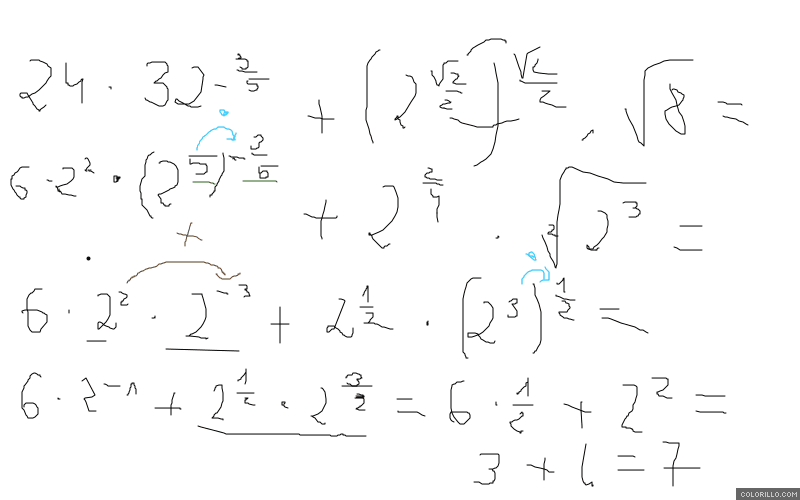 24 · 32^{-3/5} + (2^{√2/2})^{√2/2} · √8 =
6 · 2^2 · (2^5)^{-3/5} + 2^{2/4} · ^2√2^3 =
6 · 2^2 · 2^{-3} + 2^{1/2} · (2^3)^{1/2} =
6 · 2^{-1} + 2^{1/2} · 2^{3/2} = 6 · 1/2 + 2^2 =
3 + 4 = 7
COLORILLO.COM